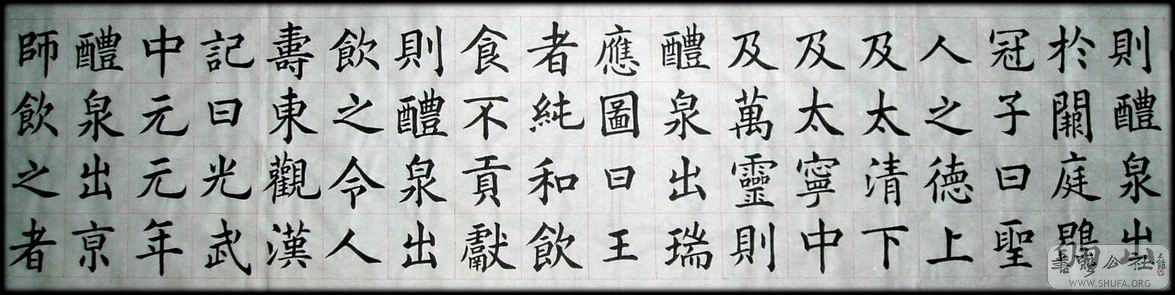 則醴泉出
於闕庭鶡
冠子曰聖
人之德上
及太清下
及太寧中
及萬靈則
醴泉出瑞
應圖曰王
者純和飲
食不貢獻
則醴泉出
飲之令人
壽東觀漢
記曰光武
中元元年
醴泉出亰
師飲之者
WWW.SHUFA.ORG